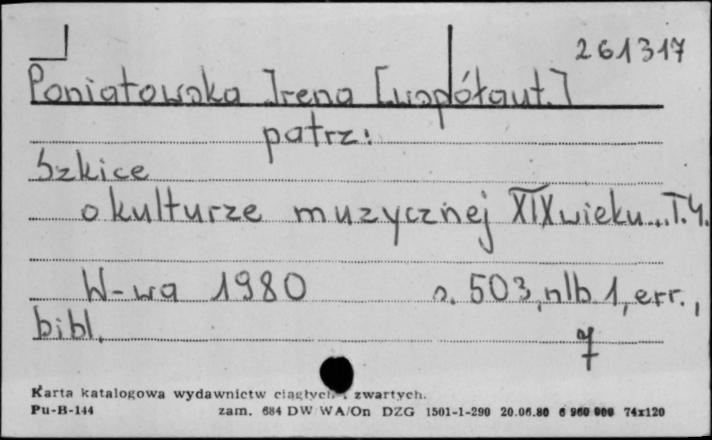 261317
Poniatowska Irena [współaut.]
patrz:
Szkice
o kulturze muzycznej XIX wieku... T.4.
W-wa 1980 s. 503, nlb 1, err.,
bibl.
7
Karta katalogowa wydawnictw ciągłych i zwartych.
Pu-B-144 zam. 684 DW WA/On DZG 1501-1-290 20.06.80 6 960 000 74x120